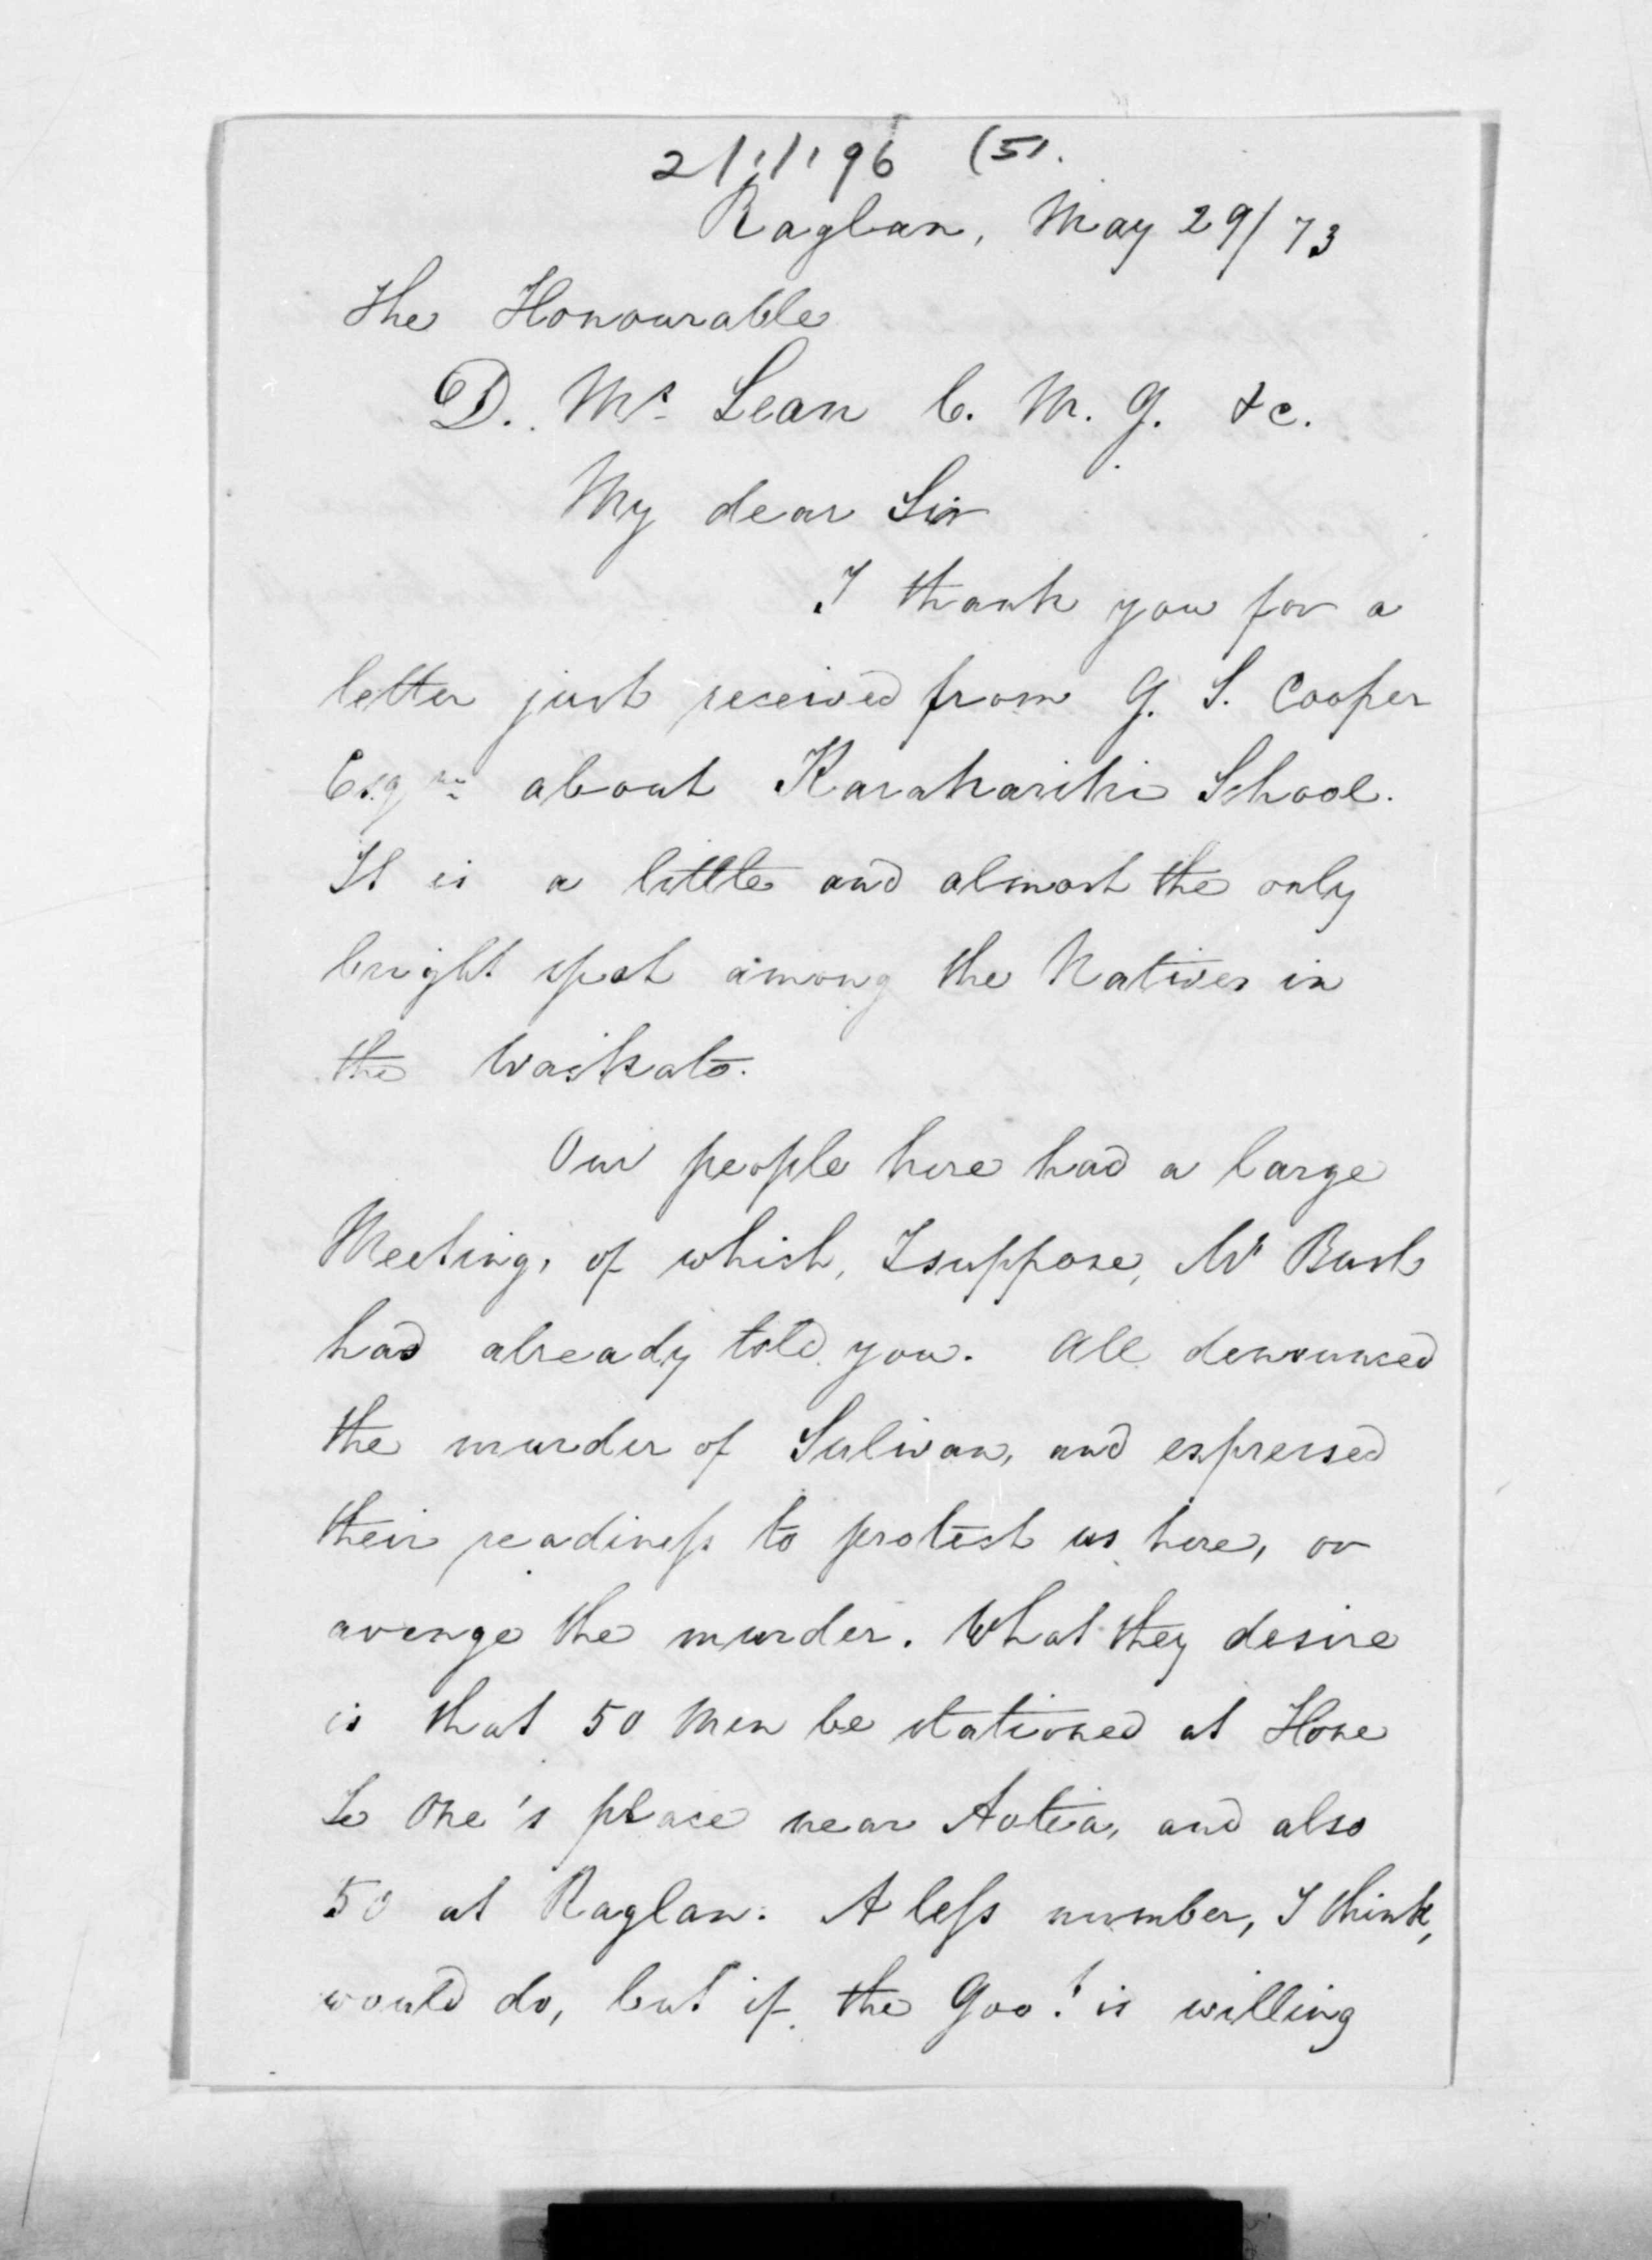 21/1/196 (5).
Raglan, May 29/73
The Honourable
D. Mc Lean C. M. G. &c.
My dear Sir
I thank you for a
letter just received from G. S. Cooper
Esqre about Karakariki School.
It is a little and almost the only
bright spot among the Natives in
the Waikato.
Our people here had a large
Meeting, of which, I suppose, Mr Bush
had already told you. All denounced
the murder of Sulivan, and expressed
their readiness to protect us here, or
avenge the murder. What they desire
is that 50 Men be stationed at Hone
Te One's place near Aotea, and also
50 at Raglan. A less number, I think,
would do, but if the Govt is willing